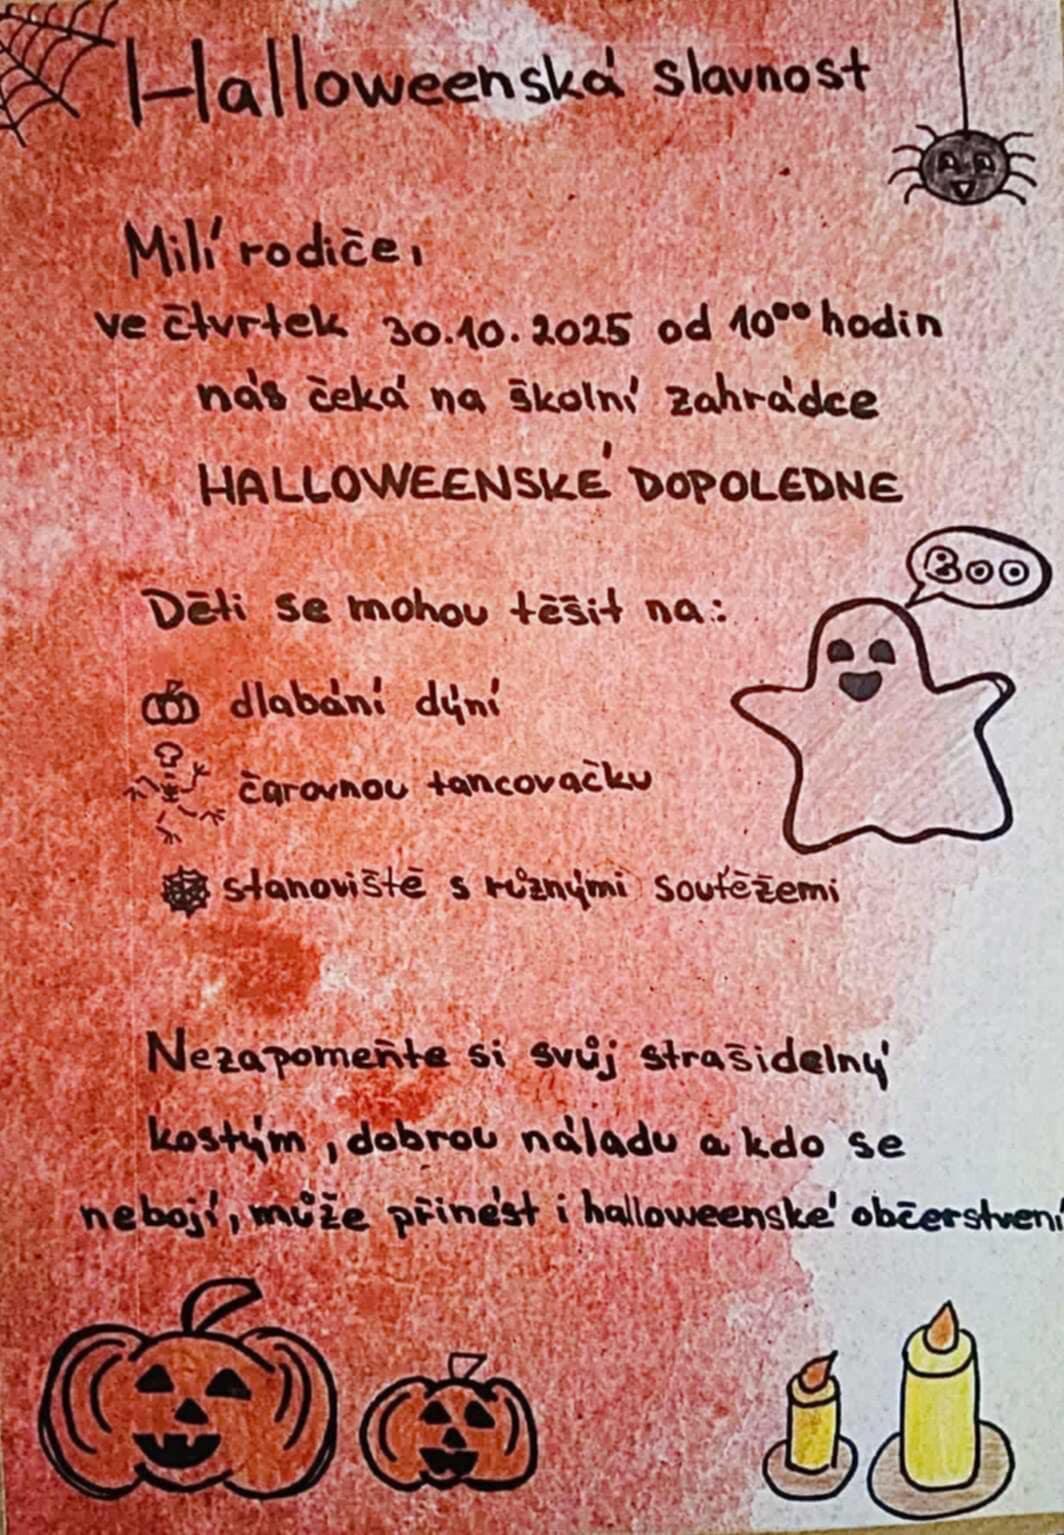 Halloweenská slavnost
Milí rodiče,
ve čtvrtek 30.10.2025 od 10⁰⁰ hodin
nás čeká na školní zahrádce
HALLOWEENSKÉ DOPOLEDNE
BOO
Děti se mohou těšit na:
dlabání dýní
čarovnou tancovačku
stanoviště s různými soutěžemi
Nezapomeňte si svůj strašidelný
kostým, dobrou náladu a kdo se
nebojí, může přinést i halloweenské občerstvení